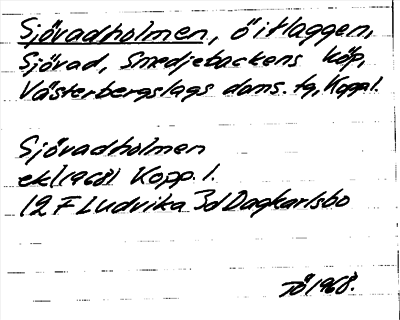 Sjövadholmen, ö i flaggen,
Sjövad, Smedjebackens köp,
Västerbergslags doms. tg, Kopp l.
Sjövadholmen
ekl (1968) Kopp. l.
12 F Ludvika 3d Dagkarlsbo
TÖ 1968.